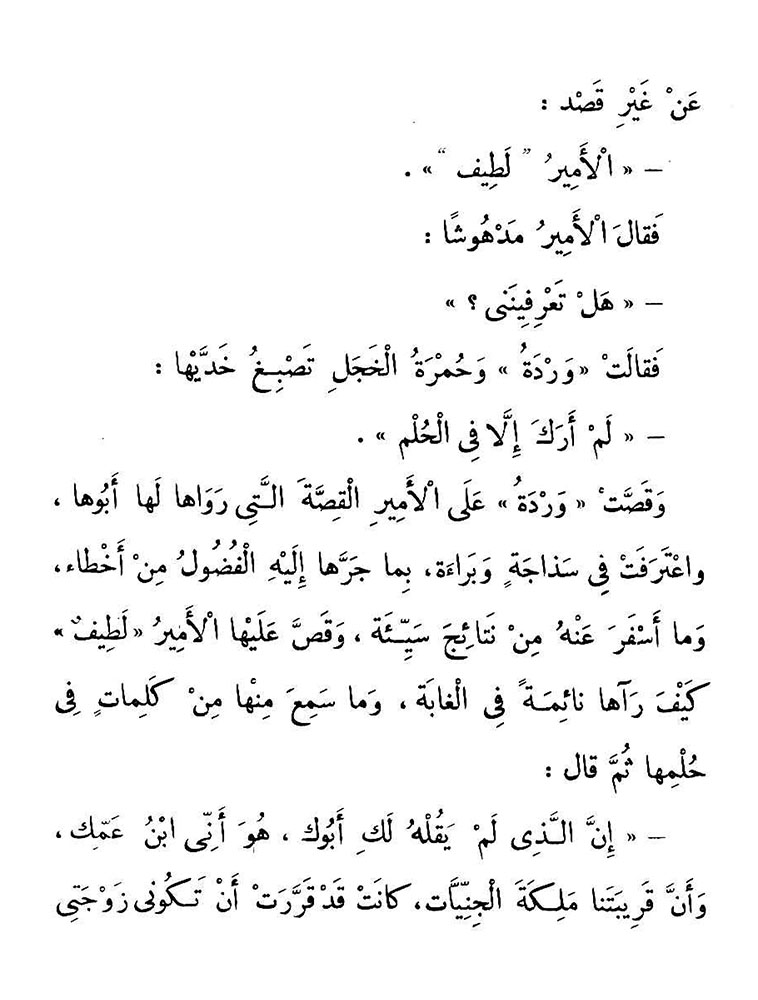 عَنْ غَيْرِ قَصْد :
– « الْأَمِيرُ " لَطِيف " » .
فَقالَ الْأَمِيرُ مَدْهُوشًا :
– « هَلْ تَعْرِفِينَنى ؟ »
فَقالَتْ « وَرْدَةُ » وَحُمْرَةُ الْخَجَلِ تَصْبِغُ خَدَّيْها :
– « لَمْ أَرَكَ إِلَّا فِى الْحُلْم » .
وَقَصَّتْ « وَرْدَةُ » عَلَى الْأَمِيرِ الْقِصَّةَ الَّتِى رَوَاها لَها أَبُوها ،
واعْتَرَفَتْ فِى سَذاجَةٍ وَبَراءَة، بِما جَرَّها إِلَيْهِ الْفُضُولُ مِنْ أَخْطاء،
وَما أَسْفَرَ عَنْهُ مِنْ نَتائِجَ سَيِّئَة ، وَقَصَّ عَلَيْها الْأَمِيرُ « لَطِيفٌ »
كَيْفَ رَآها نائِمَةً فِى الْغابَة ، وَما سَمِعَ مِنْها مِنْ كَلِماتٍ فِى
حُلْمِها ثُمَّ قال :
– « إِنَّ الَّذِى لَمْ يَقُلْهُ لَكِ أَبُوك ، هُوَ أَنِّى ابْنُ عَمِّك ،
وَأَنَّ قَرِيبَتَنا مَلِكَةَ الْجِنِّيَّات، كانَتْ قَدْ قَرَّرَتْ أَنْ تَكُونى زَوْجَتِى